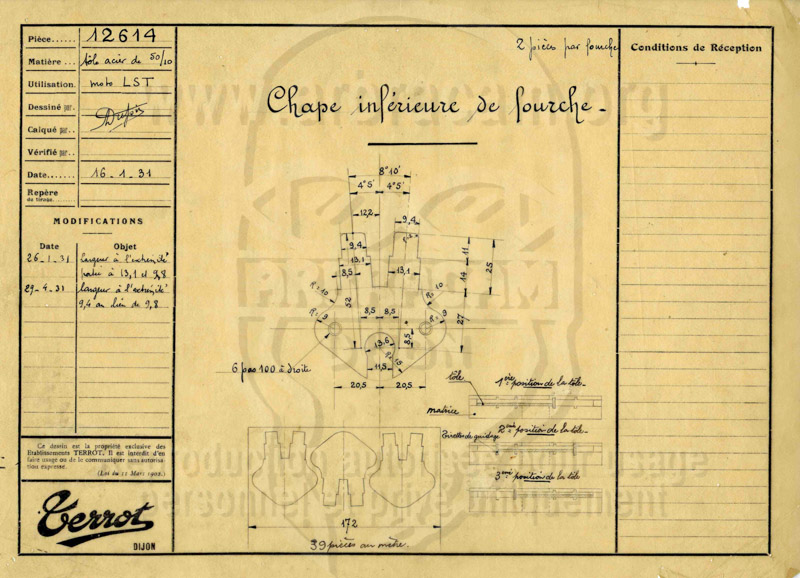 Pièce...... 12614
Matière... tôle acier de 50/10
Utilisation. moto LST
Dessiné par. Dupuis
Calqué par..
Vérifié par..
Date....... 16-1-31
Repère
du tirage.
MODIFICATIONS
Date Objet
26-1-31 largeur à l'extrémité
portée à 13,1 et 9,8
29-4-31 largeur à l'extrémité
9,4 au lieu de 9,8
Ce dessin est la propriété exclusive des
Etablissements TERROT. Il est interdit d'en
faire usage ou de le communiquer sans autorisa-
tion expresse.
(Loi du 11 Mars 1902.)
Terrot
DIJON
2 pièces par fourche
Chape inférieure de fourche-
8°10'
4°5' 4°5'
12,2
9,4
9,4
13,1
8,5
13,1
11
14
25
R=10
R=10
52
8,5 8,5
R=9
R=9
27
8,5
13,6
11,5
20,5 20,5
6 pas 100 à droite
tôle
1ère position de la tôle-
matrice
2ème position de la tôle-
3ème position de la tôle
172
39 pièces au mètre.
Conditions de Réception